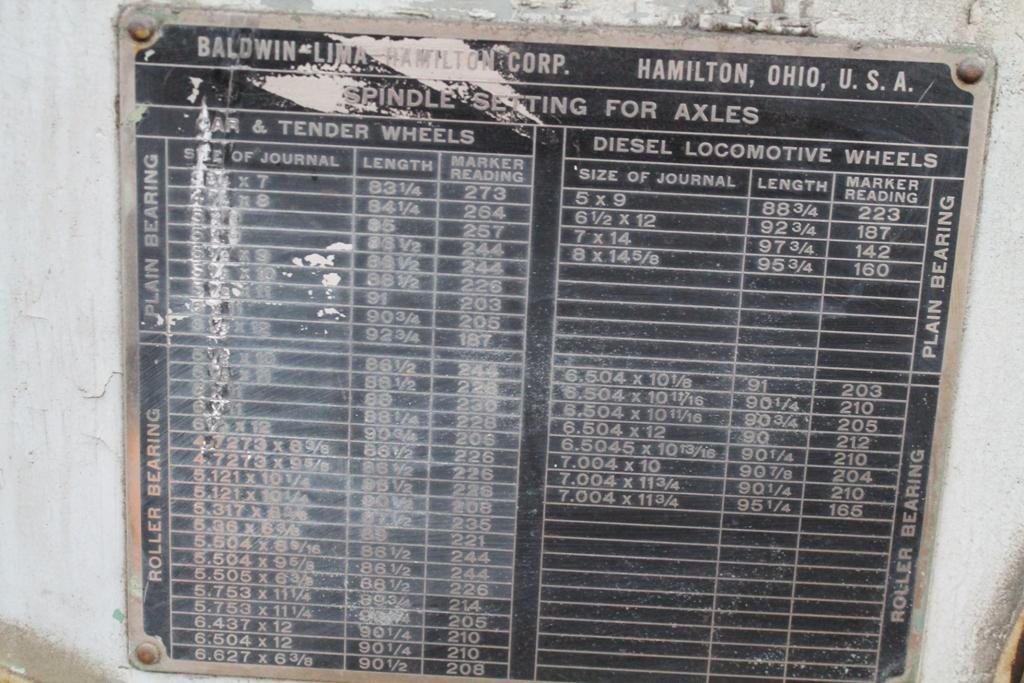 BALDWIN-LIMA-HAMILTON CORP. HAMILTON, OHIO, U.S.A.
SPINDLE SETTING FOR AXLES
CAR & TENDER WHEELS
PLAIN BEARING
SIZE OF JOURNAL LENGTH MARKER READING
x 7 83 1/4 273
x 8 84 1/4 264
85 257
86 1/2 244
x 9 86 1/2 244
x 10 88 1/2 226
91 203
90 3/4 205
x 12 92 3/4 187
ROLLER BEARING
x 10 86 1/2 244
88 1/2 226
88 230
88 1/4 228
x 12 90 3/4 205
4.7273 x 86 1/2 226
4.7273 x 86 1/2 226
5.121 x 10 1/4 226
5.121 x 10 1/4 208
5.317 x 235
5.36 x 6 3/8 89 221
5.504 x 8 5/16 86 1/2 244
5.504 x 9 5/8 86 1/2 244
5.505 x 6 3/8 88 1/2 226
5.753 x 11 1/4 214
5.753 x 11 1/4 205
6.437 x 12 90 1/4 210
6.504 x 12 90 1/4 210
6.627 x 6 3/8 90 1/2 208
DIESEL LOCOMOTIVE WHEELS
SIZE OF JOURNAL LENGTH MARKER READING
PLAIN BEARING
5 x 9 88 3/4 223
6 1/2 x 12 92 3/4 187
7 x 14 97 3/4 142
8 x 14 5/8 95 3/4 160
ROLLER BEARING
6.504 x 10 1/8 91 203
6.504 x 10 11/16 90 1/4 210
6.504 x 10 11/16 90 3/4 205
6.504 x 12 90 212
6.5045 x 10 13/16 90 1/4 210
7.004 x 10 90 7/8 204
7.004 x 11 3/4 90 1/4 210
7.004 x 11 3/4 95 1/4 165